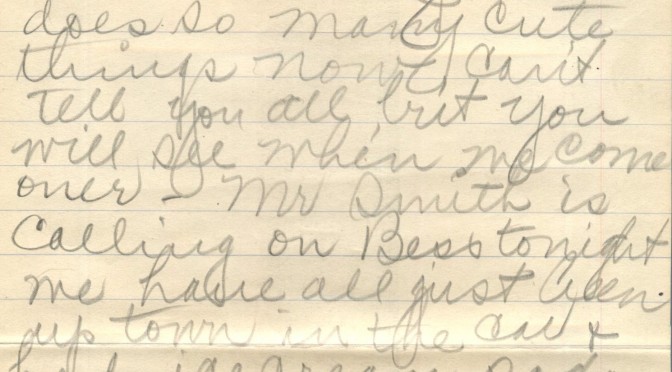 does so many cute
things now, can't
tell you all, but you
will see when we come
over - Mr Smith is
calling on Bess tonight
we have all just been
up town in the car +
had icecream sod